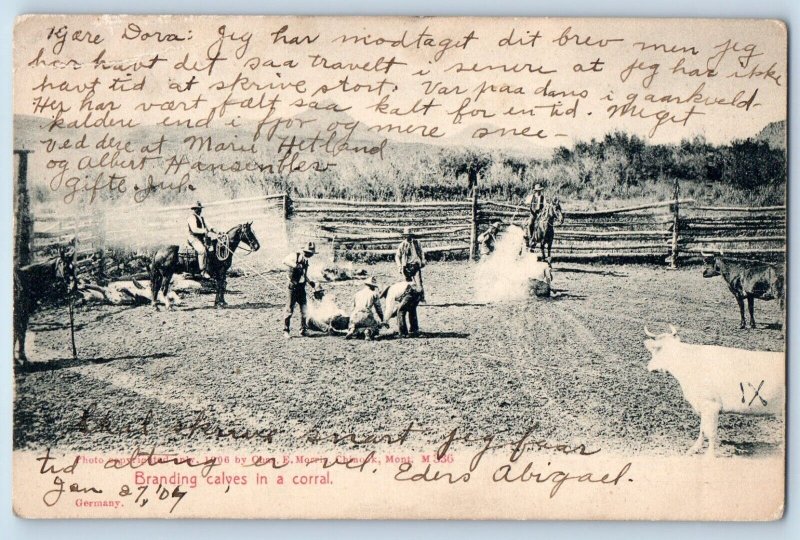 Kjære Dora: Jeg har modtaget dit brev men jeg
har havt det saa travelt i senere at jeg har ikke
havt tid at skrive stort. Var paa dans i gaarkveld-
Her har vært fælt saa kalt for en tid. Meget
kaldere end i fjor og mere snee-
ved dere at Marie Hetland
og Albert Hansen blev
gifte. Jul.
IX
skal skrive snart jeg faar
Photo copyrighted 1906 by Chas. E. Morris, Chinook, Mont. M 336
tid alting er vel, Eders Abigael.
Branding calves in a corral.
Jan 27, '07
Germany.